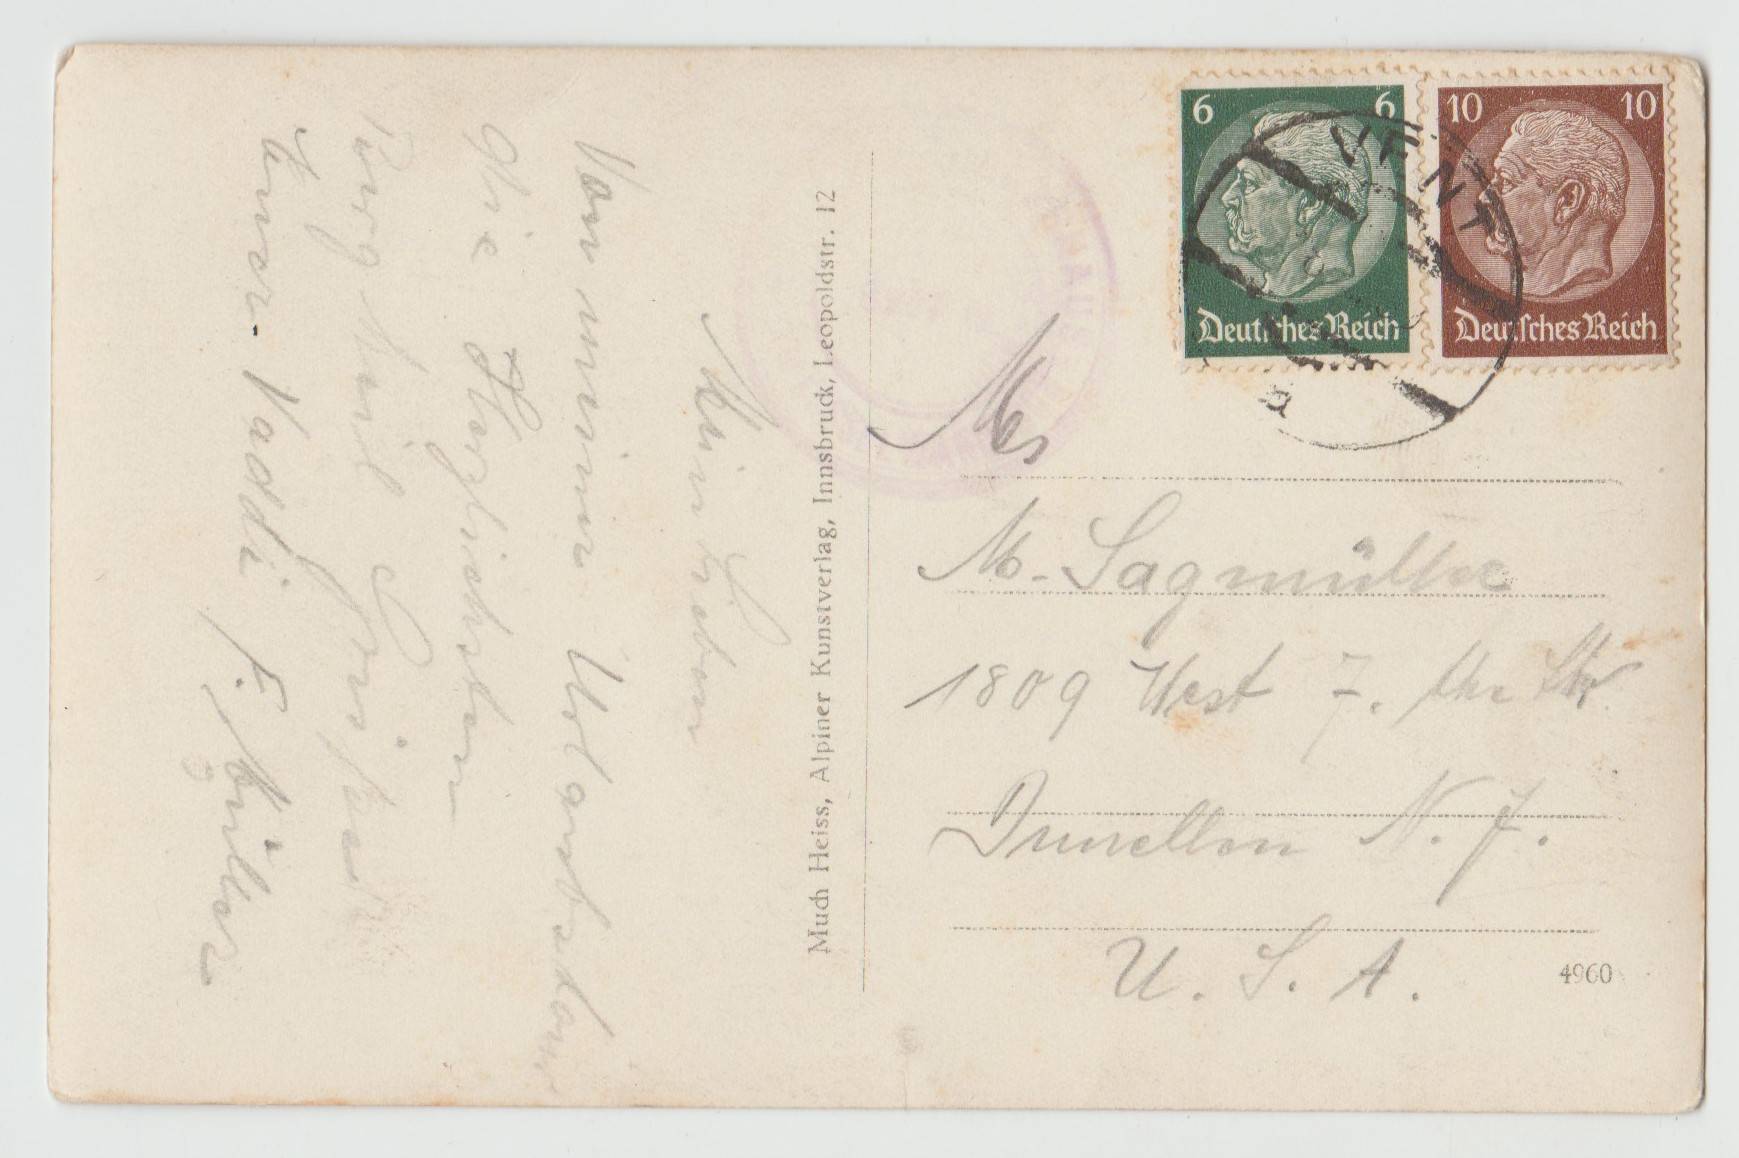 Mein Lieben
Von meiner Urlaubsdour
die Herzlichsten
Berg heil Grüsse
Euer Vaddi F. Müller
Much Heiss, Alpiner Kunstverlag, Innsbruck, Leopoldstr. 12
6 6
Deutsches Reich
10 10
Deutsches Reich
VENT
M. Sagmüller
1809 West 7. the Str.
Dunellen N. J.
U. S. A.
4960